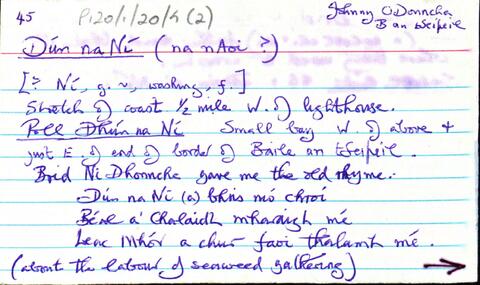 45 P120/1/20/4 (2) Johnny Ó Donncha
B an tSéipéil
Dún na Ní (na nAoi ?)
[? Ní, g. ~, washing, f.]
Stretch of coast 1/2 mile W. of lighthouse.
Poll Dhún na Ní Small bay W. of above +
just E. of end of border of Baile an tSéipéil.
Bríd Ní Dhonncha gave me the old rhyme..
Dún na Ní (a) bhris mó chroí
Béal a' Chalaidh mharaigh mé
Leac Mhór a chuir faoi thalamh mé.
(about the labour of seaweed gathering) →